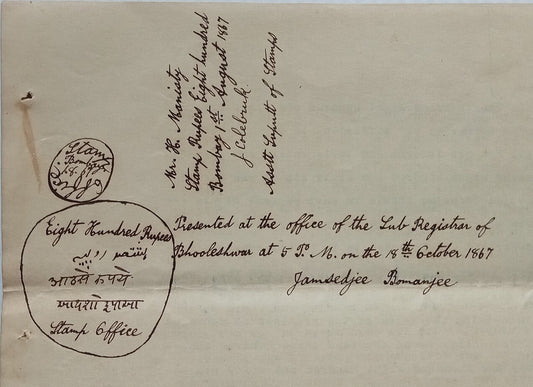 Mr. H. Manisty
Stamp Rupees Eight hundred
Bombay 1st August 1867
J Colebruk
Assett Supultt of Stamps
Stamp
Bombay
Office
Eight Hundred Rupees
आठसे रुपये
Stamp Office
Presented at the office of the Sub Registrar of
Bhooleshwar at 5 P. M. on the 18th October 1867
Jamsedjee Bomanjee